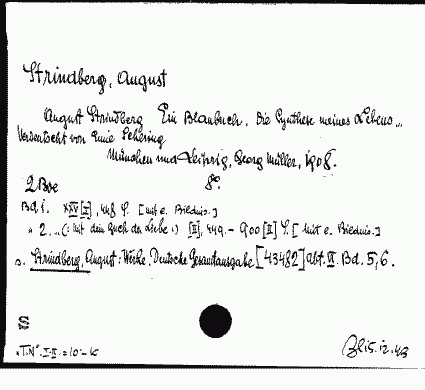 Strindberg, August
August Strindberg Ein Blaubuch. Die Synthese meines Lebens...
Verdeutscht von Emil Schering
München und Leipzig, Georg Müller, 1908.
2 Bde 8°.
Bd 1. XIV [I], 448 S. [mit e. Bildnis.]
" 2... (: mit dem Buch der Liebe :) [II], 449.- 900 [II] S. [mit e. Bildnis.]
s. Strindberg, August: Werke. Deutsche Gesamtausgabe [43482] Abt. VI. Bd. 5, 6.
S
"T.N". I-II. = 10.-K
15.12.43